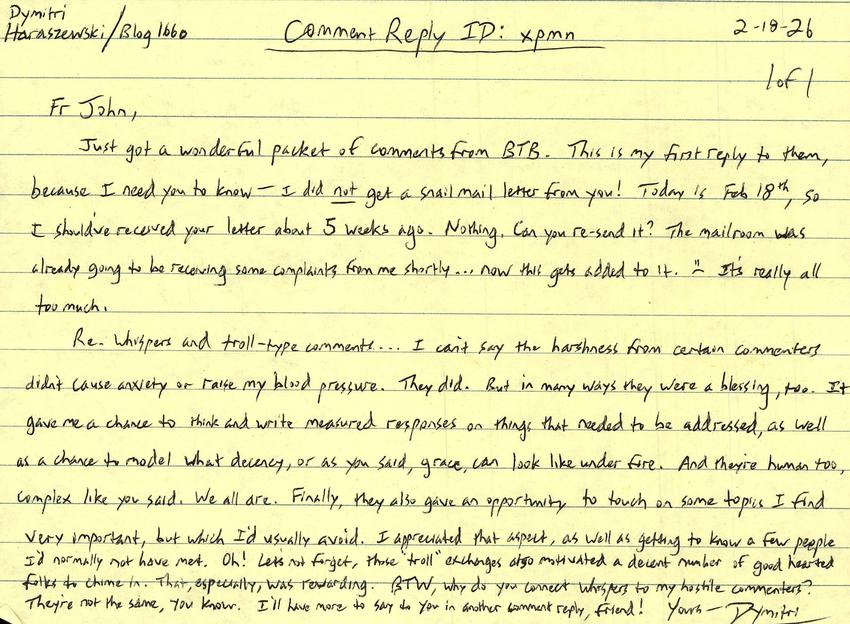 Dymitri
Haraszewski/Blog 1660
Comment Reply ID: xpmn
2-18-26
1 of 1
Fr John,
Just got a wonderful packet of comments from BTB. This is my first reply to them,
because I need you to know — I did not get a snail mail letter from you! Today is Feb 18th, so
I should've received your letter about 5 weeks ago. Nothing. Can you re-send it? The mailroom was
already going to be receiving some complaints from me shortly... now this gets added to it. It's really all
too much.
Re. Whispers and troll-type comments... I can't say the harshness from certain commenters
didn't cause anxiety or raise my blood pressure. They did. But in many ways they were a blessing, too. It
gave me a chance to think and write measured responses on things that needed to be addressed, as well
as a chance to model what decency, or as you said, grace, can look like under fire. And they're human too,
complex like you said. We all are. Finally, they also gave an opportunity to touch on some topics I find
very important, but which I'd usually avoid. I appreciated that aspect, as well as getting to know a few people
I'd normally not have met. Oh! Let's not forget, those "troll" exchanges also motivated a decent number of good hearted
folks to chime in. That, especially, was rewarding. BTW, why do you connect Whispers to my hostile commenters?
They're not the same, you know. I'll have more to say to you in another comment reply, friend! Yours — Dymitri